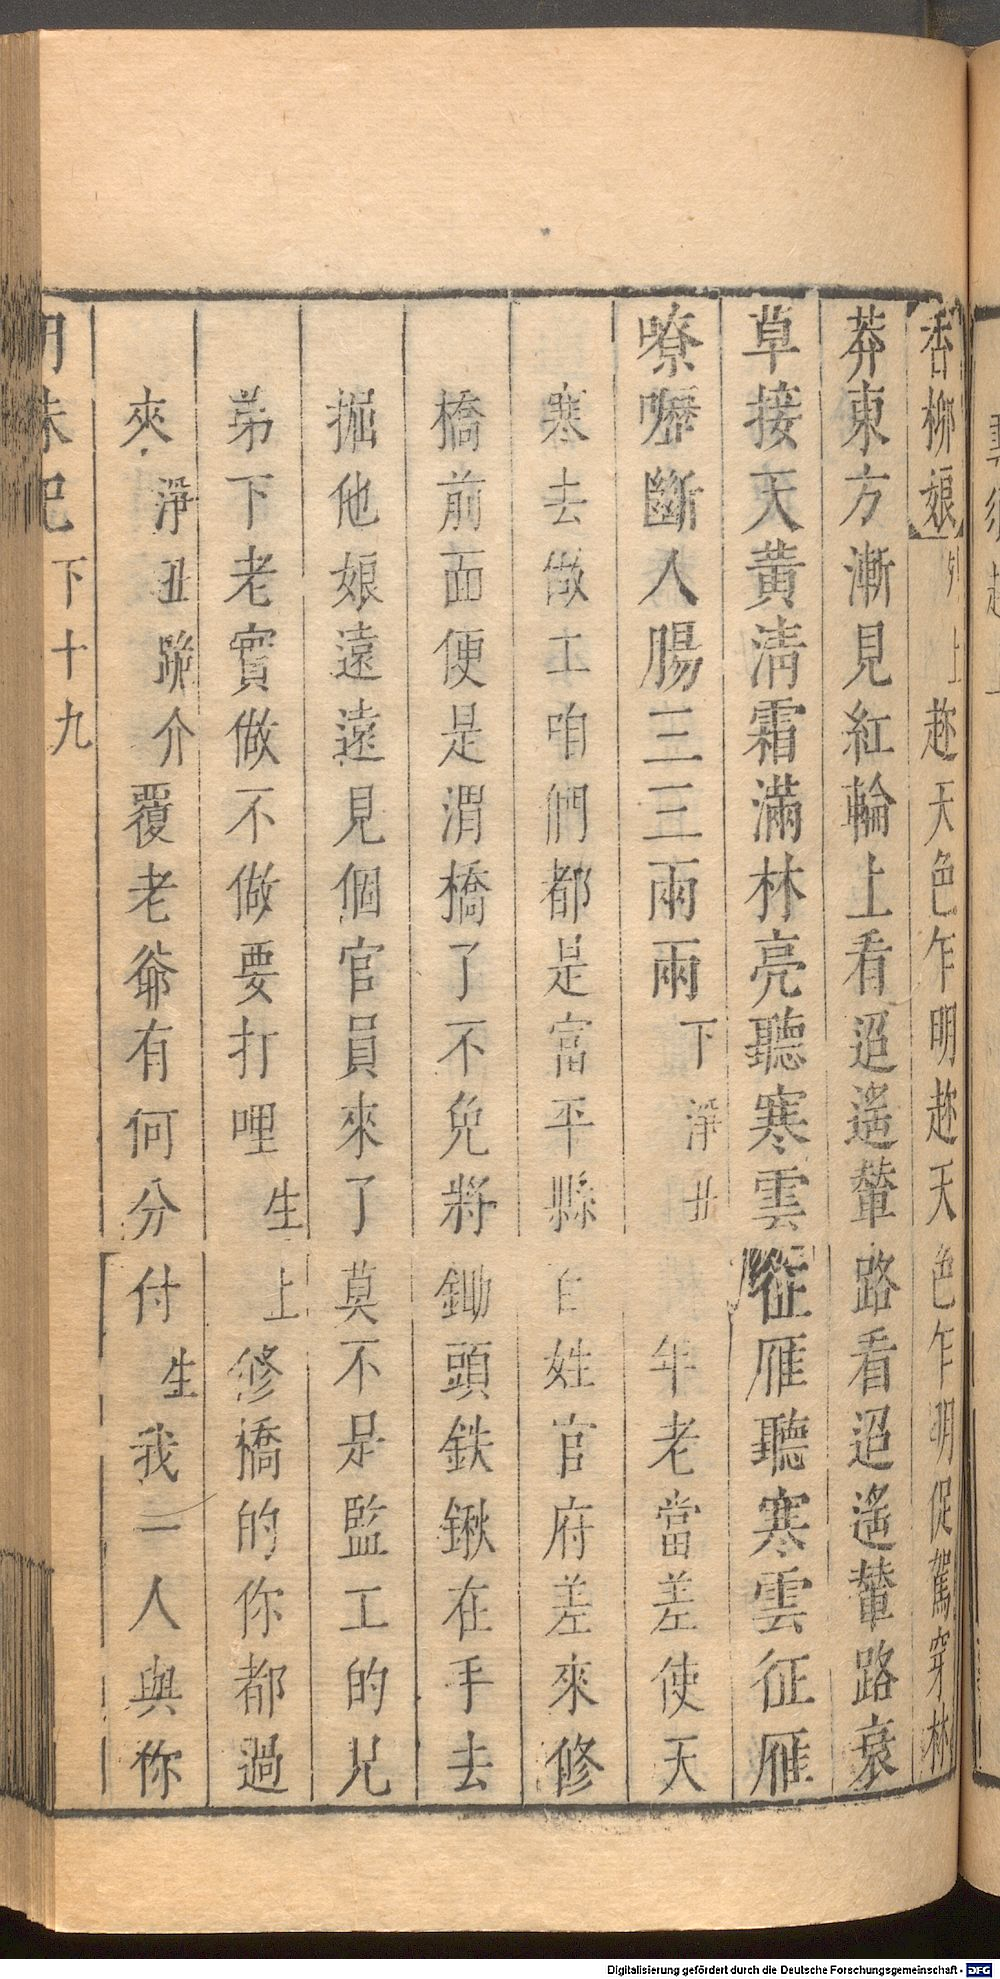 香柳娘外上趂天色乍明趂天色乍明促駕穿林
莽東方漸見紅輪上看迢遙輦路看迢遙輦路衰
草接天黃清霜滿林亮聽寒雲征雁聽寒雲征雁
嘹嚦斷人腸三三兩兩下淨丑年老當差使天
寒去做工咱們都是富平縣百姓官府差來修
橋前面便是渭橋了不免將鋤頭鉄鍬在手去
掘他娘遠遠見個官員來了莫不是監工的兄
弟下老實做不做要打哩生上修橋的你都過
來淨丑跪介覆老爺有何分付生我一人與你
明珠記 下 十九
Digitalisierung gefördert durch die Deutsche Forschungsgemeinschaft - DFG